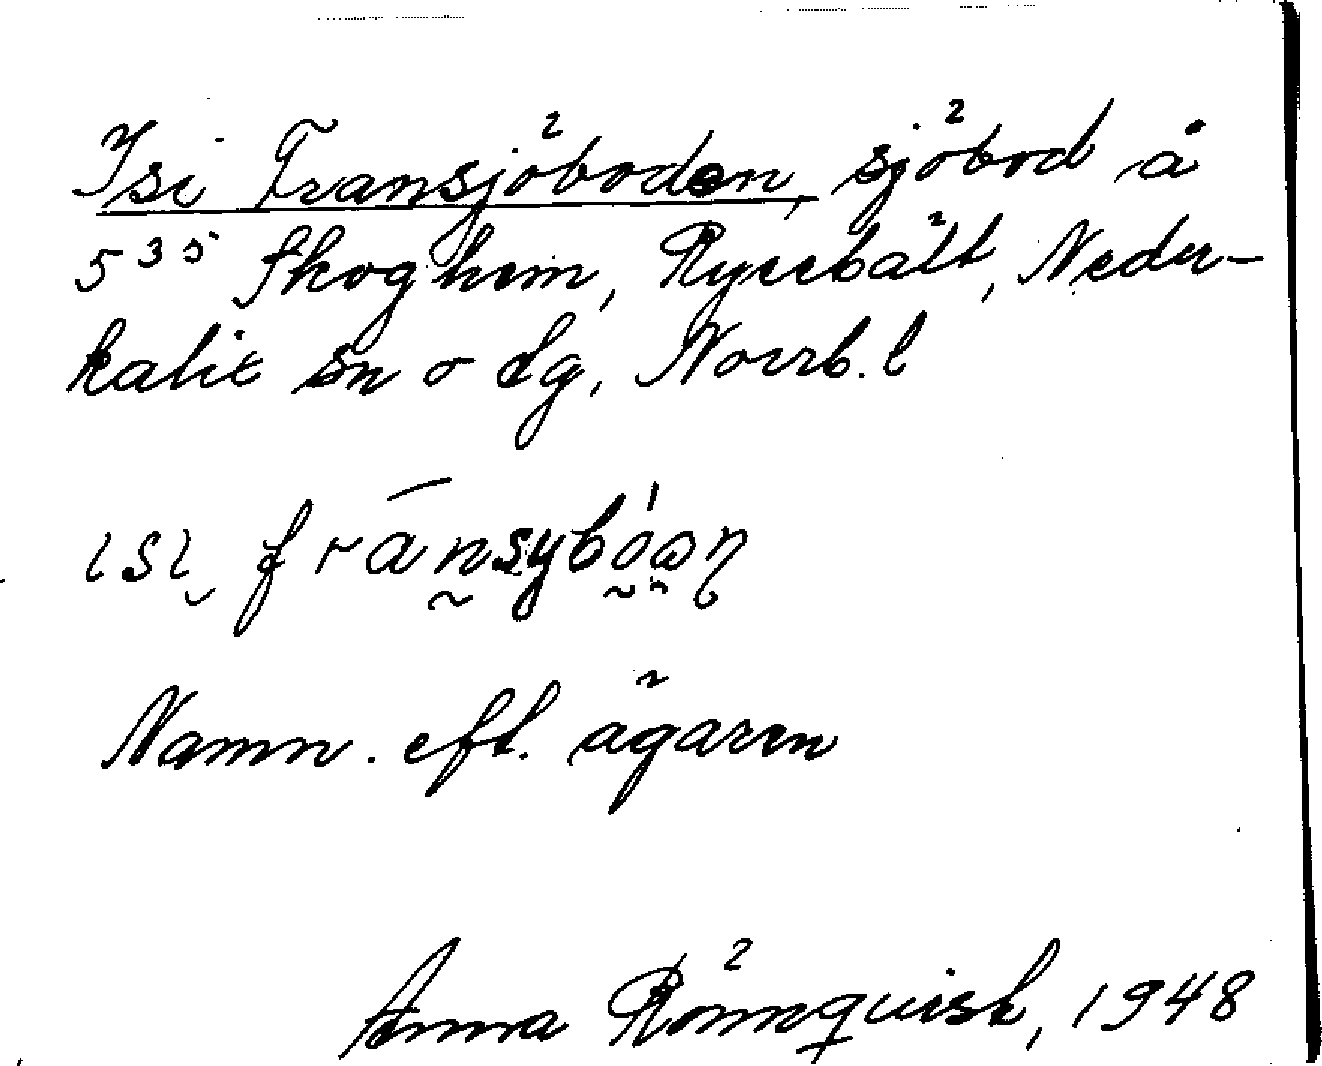 Isi Fransjöboden, sjöbod å
5 35 Skoghem, Ryssbält, Neder-
kalix sn o dg, Norrb. l
Namn. eft. ägaren
Anna Rönnquist, 1948